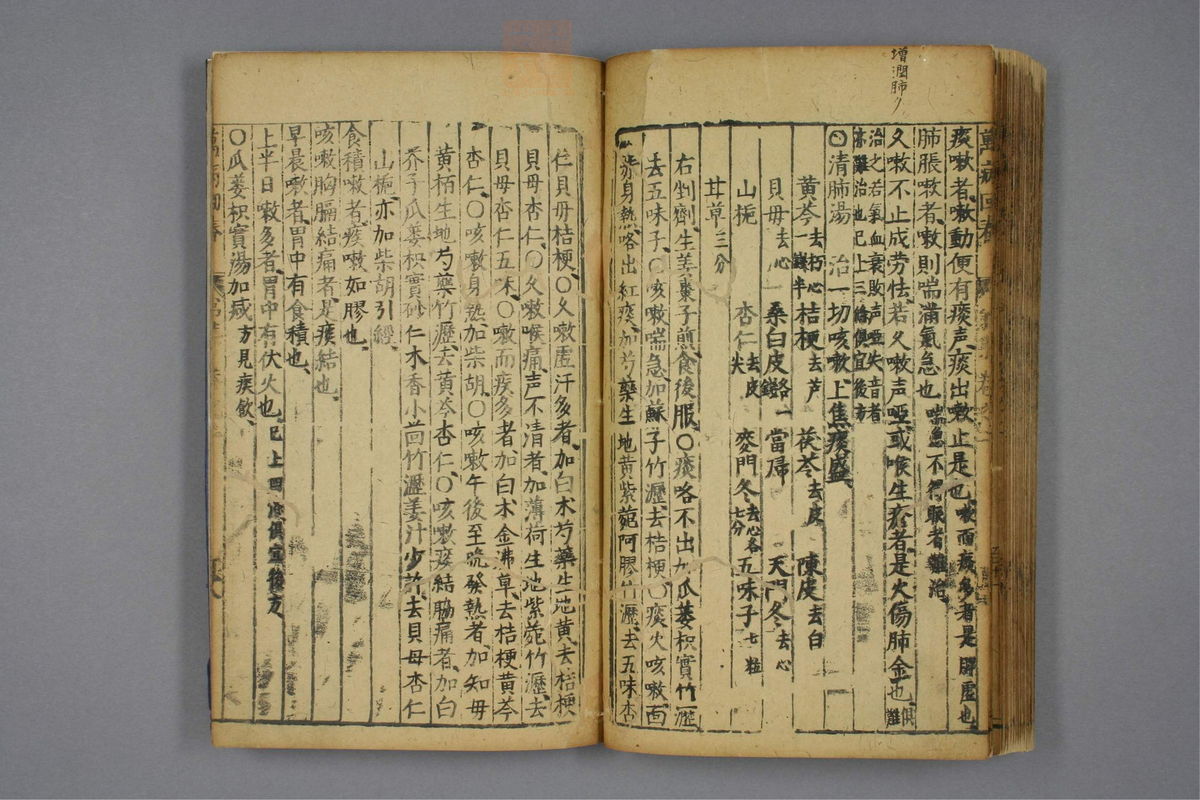 增潤肺
痰嗽者嗽動便有痰声痰出嗽止是也嗽而痰多者是脾虛也
肺脹嗽者嗽則喘滿氣急也喘急不得眠者難治
久嗽不止成劳怯若久嗽声啞或喉生瘡者是火傷肺金也俱難
治之若氣血衰敗声啞失音者亦難治也已上三條俱宜後方
〇清肺湯 治一切咳嗽上焦痰盛
黄芩去朽心一錢半 桔梗去芦 茯苓去皮 陳皮去白
貝母去心 桑白皮各一錢 當帰 天門冬去心
山梔 杏仁去皮尖 麥門冬去心各七分 五味子七粒
甘草三分
右剉劑生姜棗子煎食後服〇痰咯不出加瓜蒌枳實竹瀝
去五味子〇咳嗽喘急加蘇子竹瀝去桔梗〇痰火咳嗽面
赤身熱咯出紅痰加芍藥生地黄紫菀阿膠竹瀝去五味杏
仁貝毋桔梗〇久嗽虛汗多者加白术芍藥生地黄去桔梗
貝母杏仁〇久嗽喉痛声不清者加薄荷生地紫菀竹瀝去
貝母杏仁五味〇嗽而痰多者加白术金沸草去桔梗黄芩
杏仁〇咳嗽身熱加柴胡〇咳嗽午後至晩發熱者加知毋
黄栢生地芍藥竹瀝去黄芩杏仁〇咳嗽痰結脇痛者加白
芥子瓜蒌枳實砂仁木香小茴竹瀝姜汁少許去貝母杏仁
山梔亦加柴胡引經
食積嗽者痰嗽如膠也
咳嗽胸膈結痛者是痰結也
早晨嗽者胃中有食積也
上半日嗽多者胃中有伏火也已上四條俱宜後方
〇瓜蒌枳實湯加减方見痰飲